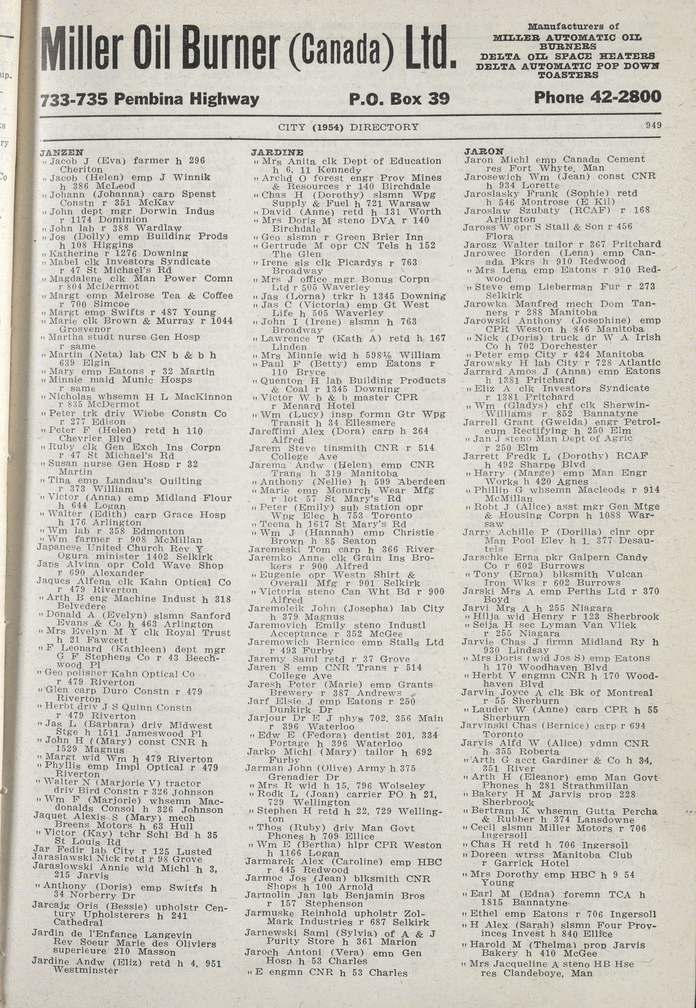 Miller Oil Burner (Canada) Ltd.
Manufacturers of
MILLER AUTOMATIC OIL
BURNERS
DELTA OIL SPACE HEATERS
DELTA AUTOMATIC POP DOWN
TOASTERS
733-735 Pembina Highway P.O. Box 39 Phone 42-2800
CITY (1954) DIRECTORY 949
JANZEN
" Jacob J (Eva) farmer h 296
Cheriton
" Jacob (Helen) emp J Winnik
h 386 McLeod
" Johann (Johanna) carp Spenst
Constn r 351 McKay
" John dept mgr Dorwin Indus
r 1174 Dominion
" John lab r 388 Wardlaw
" Jos (Dolly) emp Building Prods
h 108 Higgins
" Katherine r 1276 Downing
" Mabel clk Investors Syndicate
r 47 St Michael's Rd
" Magdalene clk Man Power Comn
r 804 McDermot
" Margt emp Melrose Tea & Coffee
r 700 Simcoe
" Margt emp Swifts r 487 Young
" Marie clk Brown & Murray r 1044
Grosvenor
" Martha studt nurse Gen Hosp
r same
" Martin (Neta) lab CN b & b h
639 Elgin
" Mary emp Eatons r 32 Martin
" Minnie maid Munic Hosps
r same
" Nicholas whsemn H L MacKinnon
r 835 McDermot
" Peter trk driv Wiebe Constn Co
r 277 Edison
" Peter F (Helen) retd h 110
Chevrier Blvd
" Ruby clk Gen Exch Ins Corpn
r 47 St Michael's Rd
" Susan nurse Gen Hosp r 32
Martin
" Tina emp Landau's Quilting
r 373 William
" Victor (Anna) emp Midland Flour
h 644 Logan
" Walter (Edith) carp Grace Hosp
h 176 Arlington
" Wm lab r 358 Edmonton
" Wm farmer r 908 McMillan
Japanese United Church Rev Y
Ogura minister 1402 Selkirk
Japs Alvina opr Cold Wave Shop
r 690 Alexander
Jaques Alfena clk Kahn Optical Co
r 479 Riverton
" Arth B eng Machine Indust h 318
Belvedere
" Donald A (Evelyn) slsmn Sanford
Evans & Co h 463 Arlington
" Mrs Evelyn M Y clk Royal Trust
h 21 Fawcett
" F Leonard (Kathleen) dept mgr
G F Stephens Co r 43 Beech-
wood Pl
" Geo polisher Kahn Optical Co
r 479 Riverton
" Glen carp Duro Constn r 479
Riverton
" Herbt driv J S Quinn Constn
r 479 Riverton
" Jas L (Barbara) driv Midwest
Stge h 1511 Jameswood Pl
" John H ((Mary) const CNR h
1529 Magnus
" Margt wid Wm h 479 Riverton
" Phyllis emp Impl Optical r 479
Riverton
" Walter N (Marjorie V) tractor
driv Bird Constn r 326 Johnson
" Wm F (Marjorie) whsemn Mac-
donalds Consol h 326 Johnson
Jaquet Alexis S (Mary) mech
Breens Motors h 63 Hull
" Victor (Kay) tchr Schl Bd h 35
St Louis Rd
Jar Fedir lab City r 125 Lusted
Jaraslawski Nick retd r 98 Grove
Jaraslowski Annie wid Michl h 3,
215 Jarvis
" Anthony (Doris) emp Swifts h
34 Norberry Dr
Jarcajg Oris (Bessie) upholstr Cen-
tury Upholsterers h 241
Cathedral
Jardin de l'Enfance Langevin
Rev Soeur Marie des Oliviers
superieure 210 Masson
Jardine Andw (Eliz) retd h 4, 951
Westminster
JARDINE
" Mrs Anita clk Dept of Education
h 6, 11 Kennedy
" Archd O forest engr Prov Mines
& Resources r 140 Birchdale
" Chas H (Dorothy) slsmn Wpg
Supply & Fuel h 721 Warsaw
" David (Anne) retd h 131 Worth
" Mrs Doris M steno DVA r 140
Birchdale
" Geo slsmn r Green Brier Inn
" Gertrude M opr CN Tels h 152
The Glen
" Irene sls clk Picardys r 763
Broadway
" Mrs J office mgr Bonus Corpn
Ltd r 505 Waverley
" Jas (Lorna) trkr h 1345 Downing
" Jas C (Victoria) emp Gt West
Life h 505 Waverley
" John I (Irene) slsmn h 763
Broadway
" Lawrence T (Kath A) retd h 167
Linden
" Mrs Minnie wid h 598½ William
" Paul F (Betty) emp Eatons r
110 Bryce
" Quenton H lab Building Products
& Coal r 1345 Downing
" Victor W b & b master CPR
r Menard Hotel
" Wm (Lucy) insp formn Gtr Wpg
Transit h 34 Ellesmere
Jareffimi Alex (Dora) carp h 264
Alfred
Jarem Steve tinsmith CNR r 514
College Ave
Jarema Andw (Helen) emp CNR
Trans h 319 Manitoba
" Anthony (Nellie) h 599 Aberdeen
" Marie emp Monarch Wear Mfg
r lot 57 St Mary's Rd
" Peter (Emily) sub station opr
Wpg Elec h 753 Toronto
" Teena h 1617 St Mary's Rd
" Wm J (Hannah) emp Christie
Brown h 85 Seaton
Jaremeski Tom carp h 366 River
Jaremko Anne clk Grain Ins Bro-
kers r 900 Alfred
" Eugenie opr Westn Shirt &
Overall Mfg r 901 Selkirk
" Victoria steno Can Wht Bd r 900
Alfred
Jaremoleik John (Josepha) lab City
h 379 Magnus
Jaremovich Emily steno Industl
Acceptance r 352 McGee
Jaremowich Bernice emp Stalls Ltd
r 493 Furby
Jaremy Saml retd r 37 Grove
Jaren S emp CNR Trans r 514
College Ave
Jaresh Peter (Marie) emp Grants
Brewery r 387 Andrews
Jarf Elsie J emp Eatons r 250
Dunkirk Dr
Jarjour Dr E J phys 702, 356 Main
r 396 Waterloo
" Edw E (Fedora) dentist 201, 334
Portage h 396 Waterloo
Jarko Michl (Mary) tailor h 692
Furby
Jarman John (Olive) Army h 375
Grenadier Dr
" Mrs R wid h 15, 796 Wolseley
" Rodk L (Joan) carrier PO h 21,
729 Wellington
" Stephen H retd h 22, 729 Welling-
ton
" Thos (Ruby) driv Man Govt
Phones h 709 Ellice
" Wm E (Bertha) hlpr CPR Weston
h 1166 Logan
Jarmarek Alex (Caroline) emp HBC
r 445 Redwood
Jarmoc Jos (Jean) blksmith CNR
Shops h 100 Arnold
Jarmolin Jan lab Benjamin Bros
r 157 Stephenson
Jarmuske Reinhold upholstr Zol-
Mark Industries r 687 Selkirk
Jarnewski Saml (Sylvia) of A & J
Purity Store h 361 Marion
Jaroch Antoni (Vera) emp Gen
Hosp h 53 Charles
" E engmn CNR h 53 Charles
JARON
Jaron Michl emp Canada Cement
res Fort Whyte, Man
Jarosewich Wm (Jean) const CNR
h 934 Lorette
Jaroslasky Frank (Sophie) retd
h 546 Montrose (E Kil)
Jaroslaw Szubaty (RCAF) r 168
Arlington
Jaross W opr S Stall & Son r 456
Flora
Jarosz Walter tailor r 367 Pritchard
Jarowec Borden (Lena) emp Can-
ada Pkrs h 910 Redwood
" Mrs Lena emp Eatons r 910 Red-
wood
" Steve emp Lieberman Fur r 273
Selkirk
Jarowka Manfred mech Dom Tan-
ners r 288 Manitoba
Jarowski Anthony (Josephine) emp
CPR Weston h 846 Manitoba
" Nick (Doris) truck dr W A Irish
Co h 702 Dorchester
" Peter emp City r 424 Manitoba
Jarowsky H lab City r 728 Atlantic
Jarrard Amos J (Anna) emp Eatons
h 1381 Pritchard
" Eliz A clk Investors Syndicate
r 1381 Pritchard
" Wm (Gladys) chf clk Sherwin-
Williams r 852 Bannatyne
Jarrell Grant (Gwelda) engr Petrol-
eum Rectifying h 250 Elm
" Jan J steno Man Dept of Agric
r 250 Elm
Jarrett Fredk L (Dorothy) RCAF
h 492 Sharpe Blvd
" Harry (Marge) emp Man Engr
Works h 420 Agnes
" Phillip G whsemn Macleods r 914
McMillan
" Robt J (Alice) asst mgr Gen Mtge
& Housing Corpn h 1088 War-
saw
Jarry Achille P (Dorilla) elnr opr
Man Pool Elev h 1, 377 Desau-
tels
Jarschke Erna pkr Galpern Candy
Co r 602 Burrows
" Tony (Erna) blksmith Vulcan
Iron Wks r 602 Burrows
Jarski Mrs A emp Perths Ltd r 370
Boyd
Jarvi Mrs A h 255 Niagara
" Hilja wid Henry r 123 Sherbrook
" Seija H sec Lyman Van Vliek
r 255 Niagara
Jarvie Chas J firmn Midland Ry h
930 Lindsay
" Mrs Doris (wid Jos S) emp Eatons
h 170 Woodhaven Blvd
" Herbt V engmn CNR h 170 Wood-
haven Blvd
Jarvin Joyce A clk Bk of Montreal
r 55 Sherburn
" Lauder W (Anne) carp CPR h 55
Sherburn
Jarvinski Chas (Bernice) carp r 694
Toronto
Jarvis Alfd W (Alice) ydmn CNR
h 355 Roberta
" Arth G acct Gardiner & Co h 34,
351 River
" Arth H (Eleanor) emp Man Govt
Phones h 281 Strathmillan
" Bakery H M Jarvis prop 228
Sherbrook
" Bertram K whsemn Gutta Percha
& Rubber h 374 Lansdowne
" Cecil slsmn Miller Motors r 706
Ingersoll
" Chas H retd h 706 Ingersoll
" Doreen wtrss Manitoba Club
r Garrick Hotel
" Mrs Dorothy emp HBC h 9 54
Young
" Earl M (Edna) foremn TCA h
1815 Bannatyne
" Ethel emp Eatons r 706 Ingersoll
" H Alex (Sarah) slsmn Four Prov-
inces Invest h 840 Ellice
" Harold M (Thelma) prop Jarvis
Bakery h 410 McGee
" Mrs Jacqueline A steno HB Hse
res Clandeboye, Man